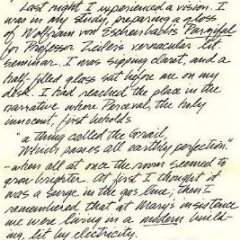 Last night I experienced a vision. I
was in my study, preparing a gloss
of Wolfram von Eschenbach's Parzifal
for Professor Zeiler's vernacular lit.
seminar. I was sipping claret, and a
half-filled glass sat before me on my
desk. I had reached the place in the
narrative where Perceval, the holy
innocent, first beholds
"a thing called the Grail,
Which passes all earthly perfection."
-when all at once the room seemed to
grow brighter. At first I thought it
was a surge in the gas line; then I
remembered that at Mary's insistence
we were living in a modern build-
ing, lit by electricity.